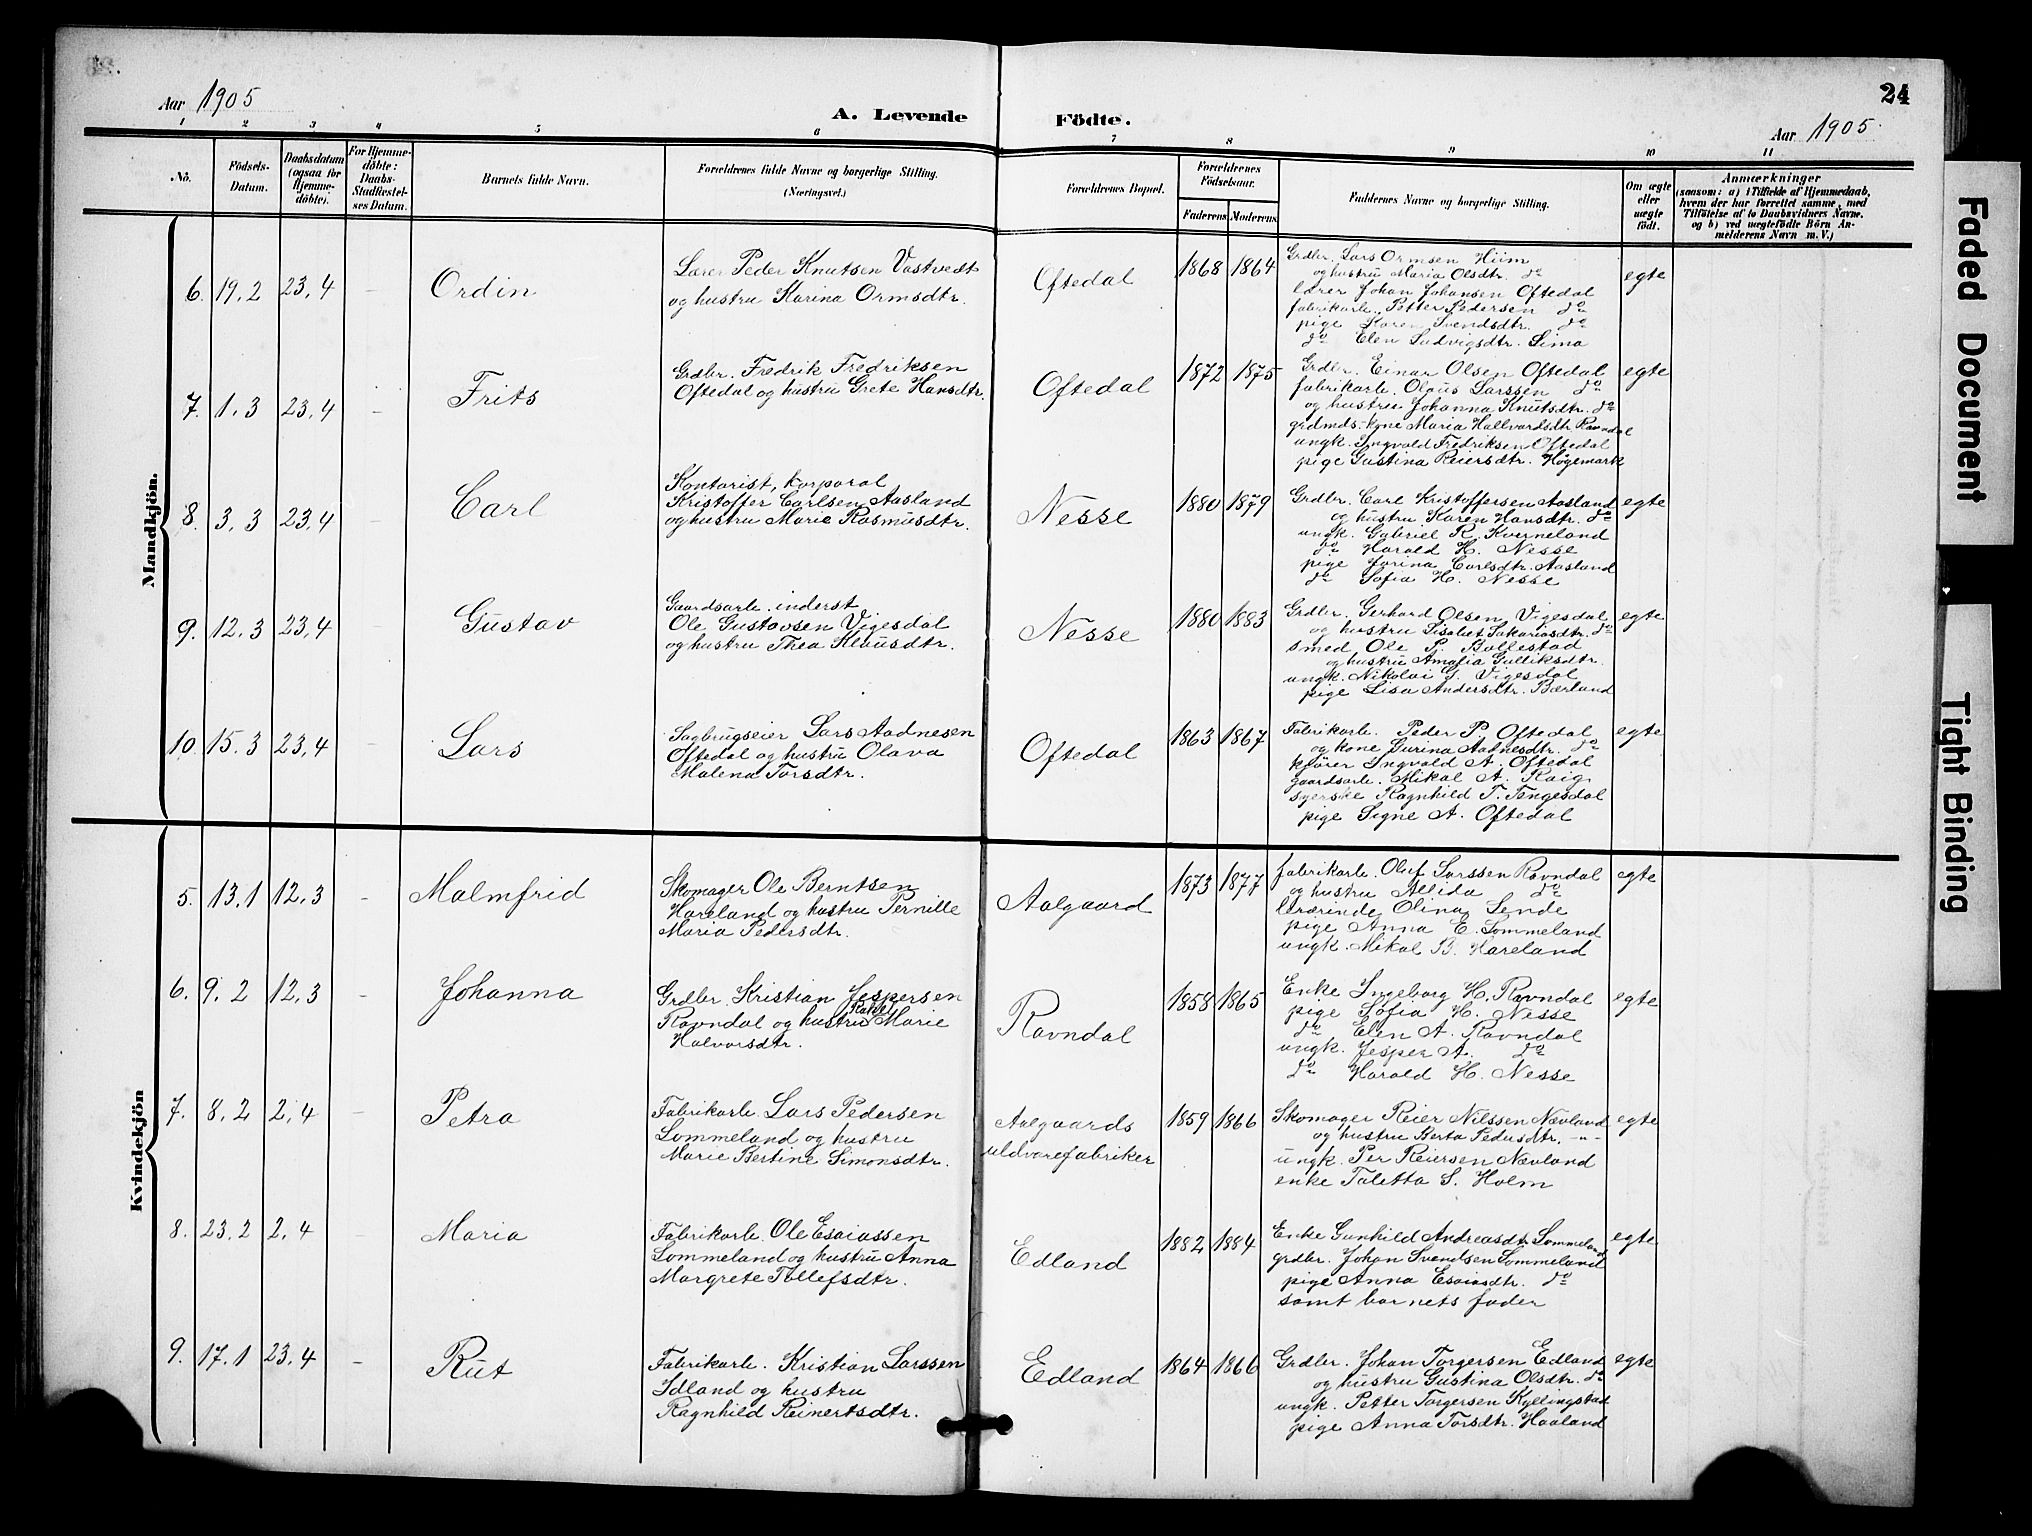 Aar 1905
A. Levende
Födte.
24
Aar 1905.
1 2 3 4 5 6 7 8 9 10 11
No.
Födsels-
Datum.
Daabsdatum
(ogsaa for
Hjemme-
döbte).
For Hjemme-
döbte:
Daabs-
Stadfæstel-
ses Datum.
Barnets fulde Navn.
Forældrenes fulde Navne og borgerlige Stilling.
(Næringsvei.)
Forældrenes Bopæl.
Forældrenes
Födselsaar.
Faderens Moderens
Faddernes Navne og borgerlige Stilling.
Om ægte
eller
uægte
födt.
Anmærkninger
(saasom: a) i Tilfælde af Hjemmedaab,
hvem der har forrettet samme, med
Tilföielse af to Daabsvidners Navne.
og b) ved uægtefödte Börn An-
melderens Navn m. V.)
Mandkjön.
6. 19,2 23,4 - Ordin
Lærer Peder Knutsen Vastvedt
og hustru Karina Ormsdtr.
Oftedal
1868 1864
Grdbr. Lars Ormsen Hiim
og hustru Maria Olsdtr. do
lærer Johan Johansen Oftedal
fabrikarb. Petter Pedersen do
pige Karen Svendsdtr. do
do Elen Ludvigsdtr. Lima
egte
7. 1.3 23,4 - Frits
Grdbr. Fredrik Fredriksen
Oftedal og hustru Grete Hansdtr.
Oftedal
1872 1875
Grdbr. Einar Olsen Oftedal
fabrikarb. Olaus Larssen do
og hustru Johanna Knutsdtr. do
grdmds. kone Maria Hallvardsdtr Ravndal
ungk. Ingvald Fredriksen Oftedal
pige Gustina Reiersdtr. Høgemark
egte
8. 3,3 23,4 - Carl
Kontorist, korporal
Kristoffer Carlsen Aasland
og hustru Marie Rasmusdtr.
Nesse
1880 1879
Grdbr. Carl Kristoffersen Aasland
og hustru Karen Hansdtr. do
ungk. Gabriel R. Kverneland
do Harald H. Nesse
pige Jorina Carlsdtr. Aasland
do Sofia H. Nesse
egte
9. 12,3 23,4 - Gustav
Gaardsarb. inderst
Ole Gustavsen Vigesdal
og hustru Thea Klausdtr.
Nesse
1880 1883
Grdbr. Gerhard Olsen Vigesdal
og hustru Lisabet Sakariasdtr. do
smed Ole P. Bollestad
og hustru Amalia Gulliksdtr.
ungk. Nikolai G. Vigesdal
pige Lisa Andersdtr. Bærland
egte
10. 15.3 23,4 - Lars
Sagbrugseier Lars Aadnesen
Oftedal og hustru Olava
Malena Torsdtr.
Oftedal
1863 1867
Fabrikarb. Peder P. Oftedal
og kone Surina Aadnesdtr. do
kjører Ingvald A. Oftedal
gaardsarb. Mikal A. Raig
syerske Ragnhild T. Tengesdal
pige Signe A. Oftedal
egte
Kvindekjön
5. 13,1 12,3 - Malmfrid
Skomager Ole Berntsen
Hareland og hustru Pernille
Maria Pedersdtr.
Aalgaard
1873 1877
fabrikarb. Oluf Larssen Ravndal
og hustru Allida do
lærerinde Olina Lende
pige Anna E. Sommeland
ungk. Mikal B. Hareland
egte
6. 9.2 12,3 - Johanna
Grdbr. Kristian Jespersen
Ravndal og hustru Marie
Halvorsdtr.
Ravndal
1858 1865
Enke Ingeborg H. Ravndal
pige Sofia H. Nesse
do Elen A. Ravndal
ungk. Jesper A. do
do Harald H. Nesse
egte
7. 8,2 2,4 - Petra
Fabrikarb. Lars Pedersen
Sommeland og hustru
Marie Bertine Simonsdtr.
Aalgaards
uldvarefabriker
1859 1866
Skomager Reier Nilssen Nævland
og hustru Berta Pedersdtr. -"-
ungk. Per Reiersen Nævland
enke Taletta S. Holm
egte
8. 23,2 2,4 - Maria
Fabrikarb. Ole Esaiassen
Sommeland og hustru Anna
Margrete Tollefsdtr.
Edland
1882 1884
Enke Gunhild Andreasdtr Sommeland
grdbr. Johan Svendsen Sommeland
pige Anna Esaiasdtr. do
samt barnets fader
egte
9. 17.1 23,4 - Rut
Fabrikarb. Kristian Larssen
Idland og hustru
Ragnhild Reinertsdtr.
Edland
1864 1866
Grdbr. Johan Torgersen Edland
og hustru Gustina Olsdtr. do
ungk. Petter Torgersen Kyllingstad
pige Anna Torsdtr. Haaland
egte
Faded Document
Tight Binding